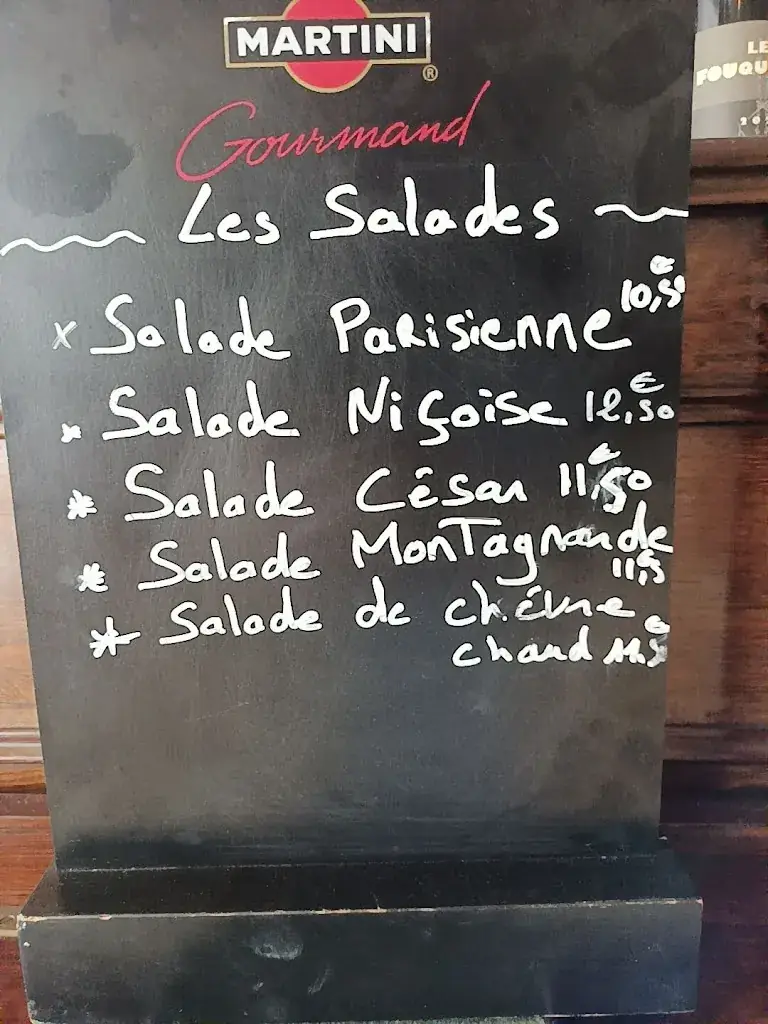 MARTINI
®
Gourmand
Les Salades
x Salade Parisienne 10,50€
* Salade Niçoise 12,50€
* Salade César 11,50€
* Salade Montagnarde
11,5
* Salade de chèvre
chaud 11.5€
LE
FOUQU